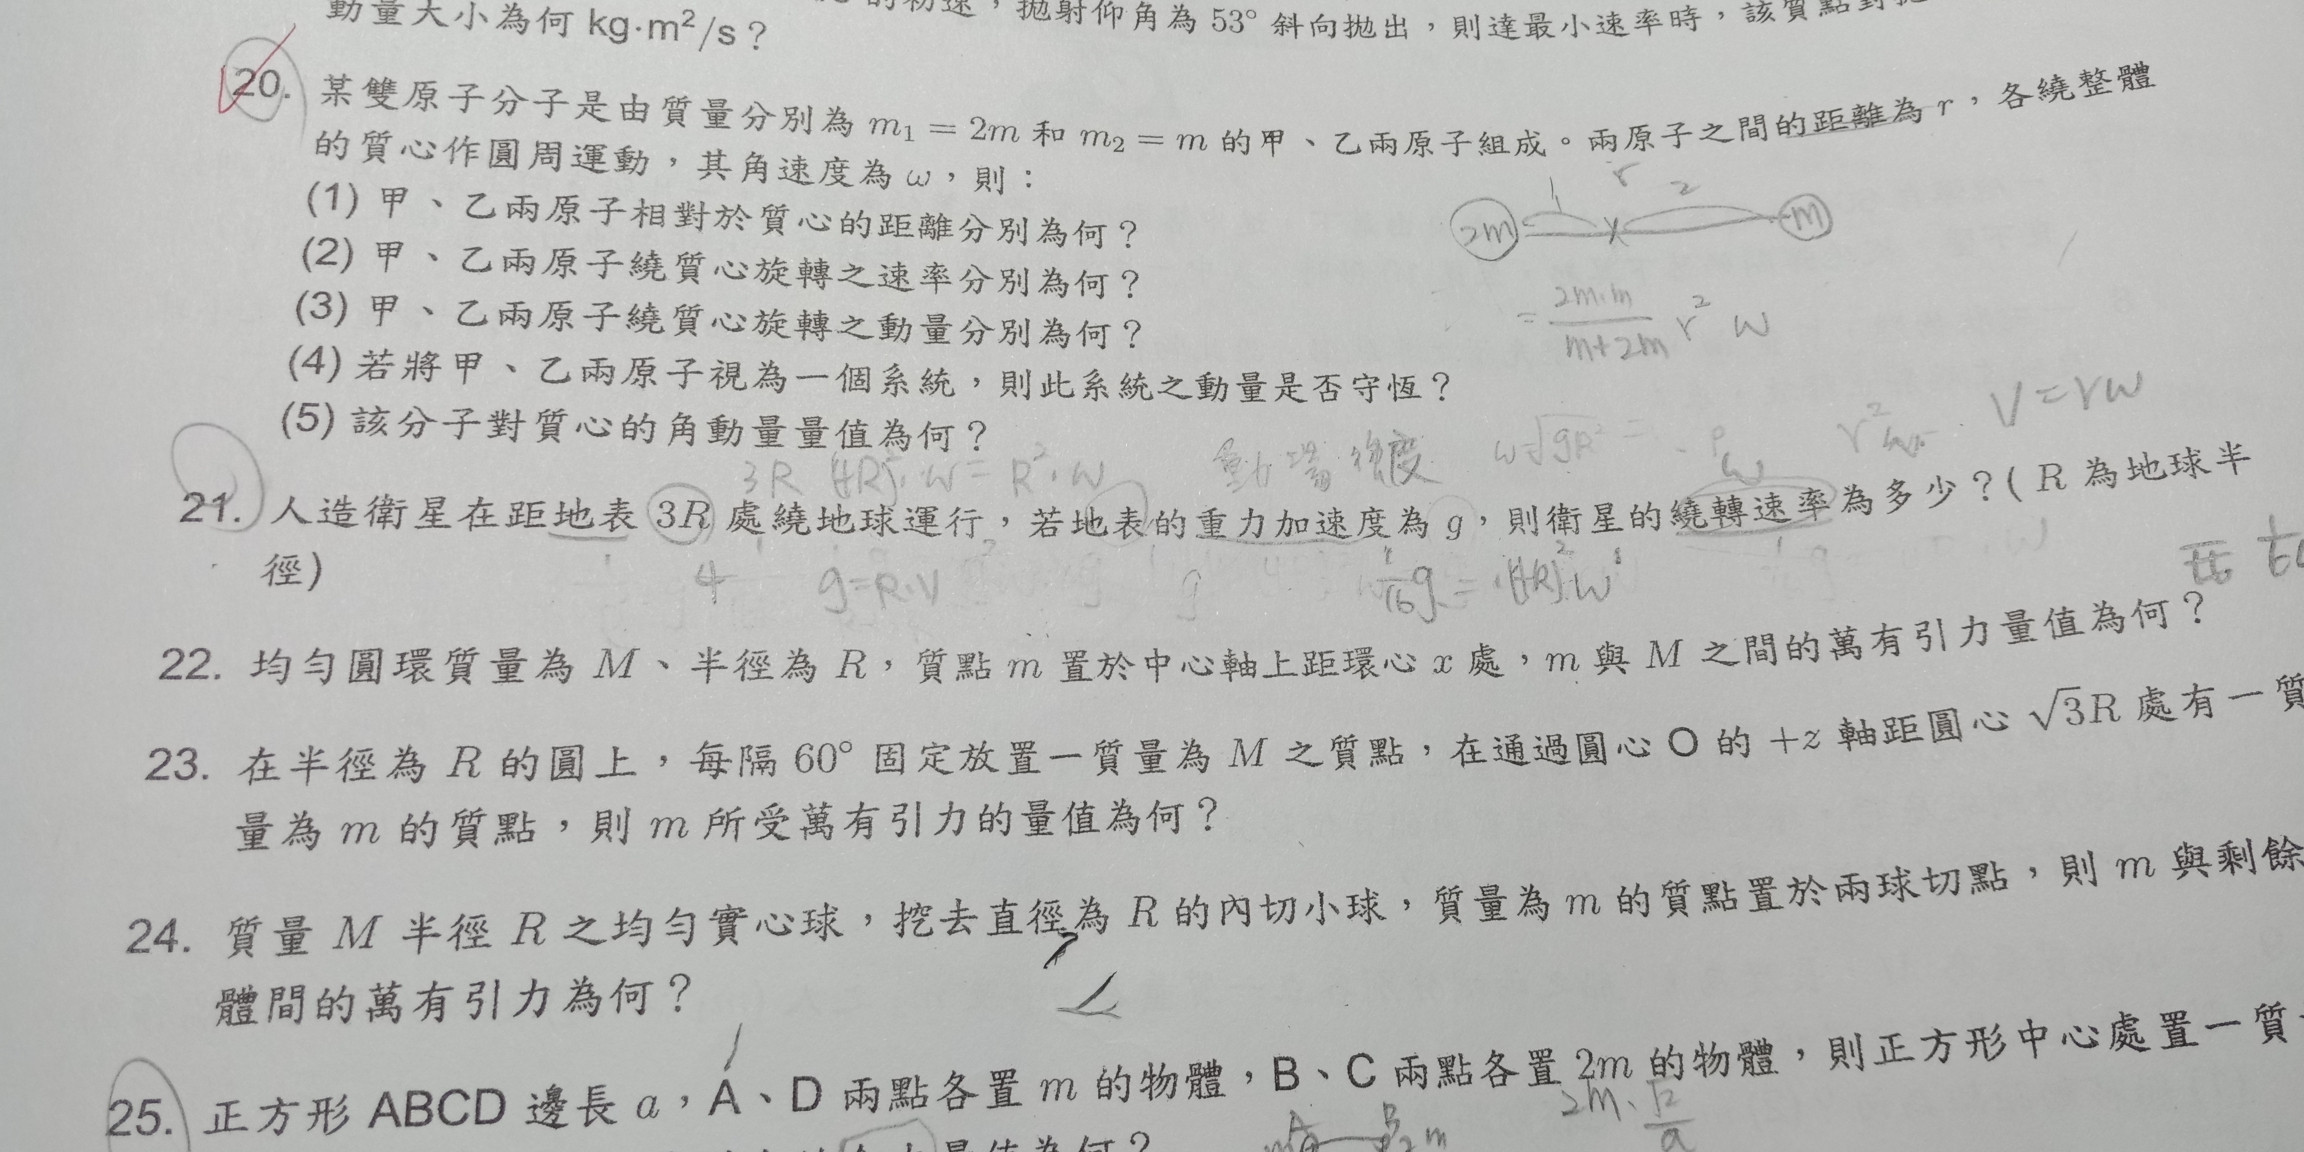 動量大小為何 kg·m²/s？
的初速，拋射仰角為 53° 斜向拋出，則達最小速率時，該質點對
20. 某雙原子分子是由質量分別為 m₁ = 2m 和 m₂ = m 的甲、乙兩原子組成。兩原子之間的距離為 r，各繞整體
的質心作圓周運動，其角速度為 ω，則：
(1) 甲、乙兩原子相對於質心的距離分別為何？
(2) 甲、乙兩原子繞質心旋轉之速率分別為何？
(3) 甲、乙兩原子繞質心旋轉之動量分別為何？
(4) 若將甲、乙兩原子視為一個系統，則此系統之動量是否守恆？
(5) 該分子對質心的角動量量值為何？
r
1 2
2m m
= 2m·m/m+2m r² ω
V = rω
3R (4R)²·ω = R²·ω
21. 人造衛星在距地表 3R 處繞地球運行，若地表的重力加速度為 g，則衛星的繞轉速率為多少？( R 為地球半
徑)
4 g=R·V g 1/16 g = (4R)²ω
22. 均勻圓環質量為 M、半徑為 R，質點 m 置於中心軸上距環心 x 處，m 與 M 之間的萬有引力量值為何？
23. 在半徑為 R 的圓上，每隔 60° 固定放置一質量為 M 之質點，在通過圓心 O 的 +z 軸距圓心 √3R 處有一質
量為 m 的質點，則 m 所受萬有引力的量值為何？
24. 質量 M 半徑 R 之均勻實心球，挖去直徑為 R 的內切小球，質量為 m 的質點置於兩球切點，則 m 與剩餘
體間的萬有引力為何？
25. 正方形 ABCD 邊長 a，A、D 兩點各置 m 的物體，B、C 兩點各置 2m 的物體，則正方形中心處置一質
量值為何？
A B 2m
2m·√2/a